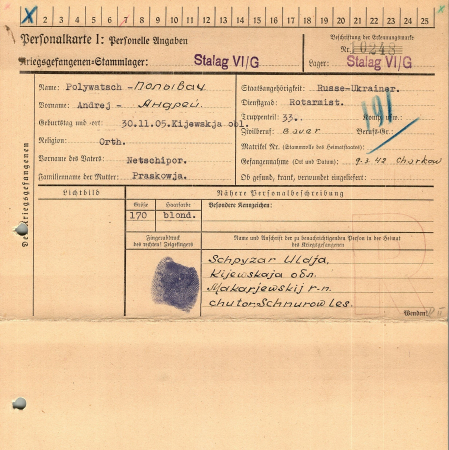 X 2 3 4 5 6 7 8 9 10 11 12 13 14 15 16 17 18 19 20 21 22 23 24 25
Personalkarte I: Personelle Angaben
Kriegsgefangenen-Stammlager: Stalag VI/G
Beschriftung der Erkennungsmarke
Nr. 10248
Lager: Stalag VI/G
Des Kriegsgefangenen
Name: Polywatsch-
Vorname: Andrej - Андрей.
Geburtstag und -ort 30.11.05.Kijewskja obl.
Religion: Orth.
Vorname des Vaters: Netschipor.
Familienname der Mutter: Praskowja.
Staatsangehörigkeit: Russe-Ukrainer.
Dienstgrad: Rotarmist.
Truppenteil: 33. Komp. usw.
Zivilberuf: Bauer Berufs-Gr.
Matrikel Nr. (Stammrolle des Heimatstaates)
Gefangennahme (Ort und Datum): 42 Charkow
Ob gesund, krank, verwundet eingeliefert:
191
Lichtbild
Nähere Personalbeschreibung
Größe Haarfarbe Besondere Kennzeichen:
170 blond.
Fingerabdruck
des rechten Zeigefingers
Name und Anschrift der zu benachrichtigenden Person in der Heimat
des Kriegsgefangenen
Schpyzar Uldja,
Kijewskaja обл.
Makarjewskij r-n.
chutor.Schnurow les.
R
Wenden!